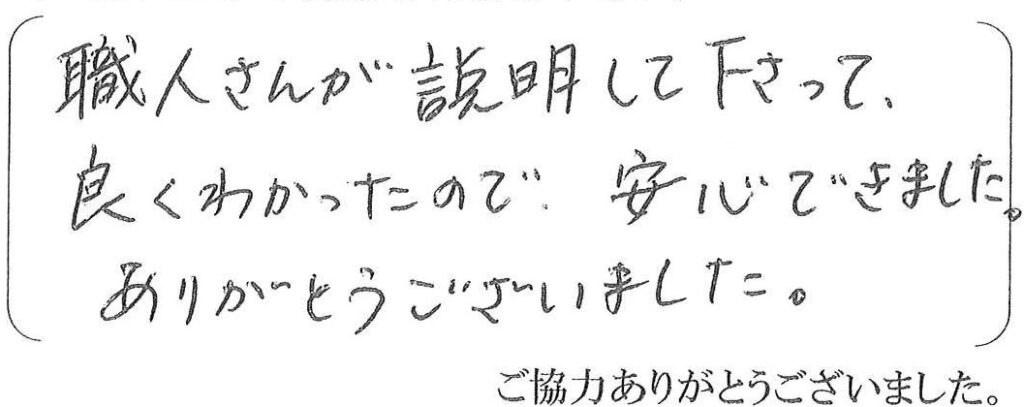 職人さんが説明して下さって、
良くわかったので、安心できました。
ありがとうございました。
ご協力ありがとうございました。